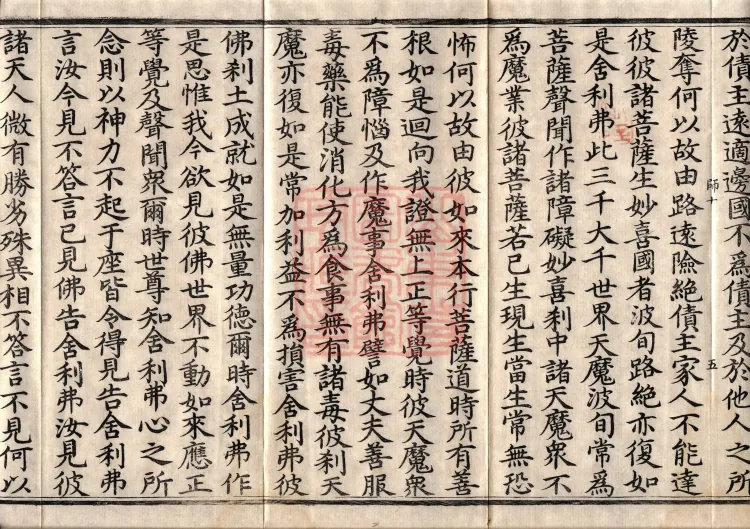 於債主遠適邊國不爲債主及於他人之所
師十
五
陵奪何以故由路遠險絶債主家人不能達
彼彼諸菩薩生妙喜國者波旬路絶亦復如
是舍利弗此三千大千世界天魔波旬常爲
菩薩聲聞作諸障礙妙喜刹中諸天魔衆不
爲魔業彼諸菩薩若已生現生當生常無恐
怖何以故由彼如來本行菩薩道時所有善
根如是迴向我證無上正等覺時彼天魔衆
不爲障惱及作魔事舍利弗譬如丈夫善服
毒藥能使消化方爲食事無有諸毒彼刹天
魔亦復如是常加利益不爲損害舍利弗彼
佛刹土成就如是無量功德爾時舍利弗作
是思惟我今欲見彼佛世界不動如來應正
等覺及聲聞衆爾時世尊知舍利弗心之所
念則以神力不起于座皆令得見告舍利弗
言汝今見不答言已見佛告舍利弗汝見彼
諸天人微有勝劣殊異相不答言不見何以